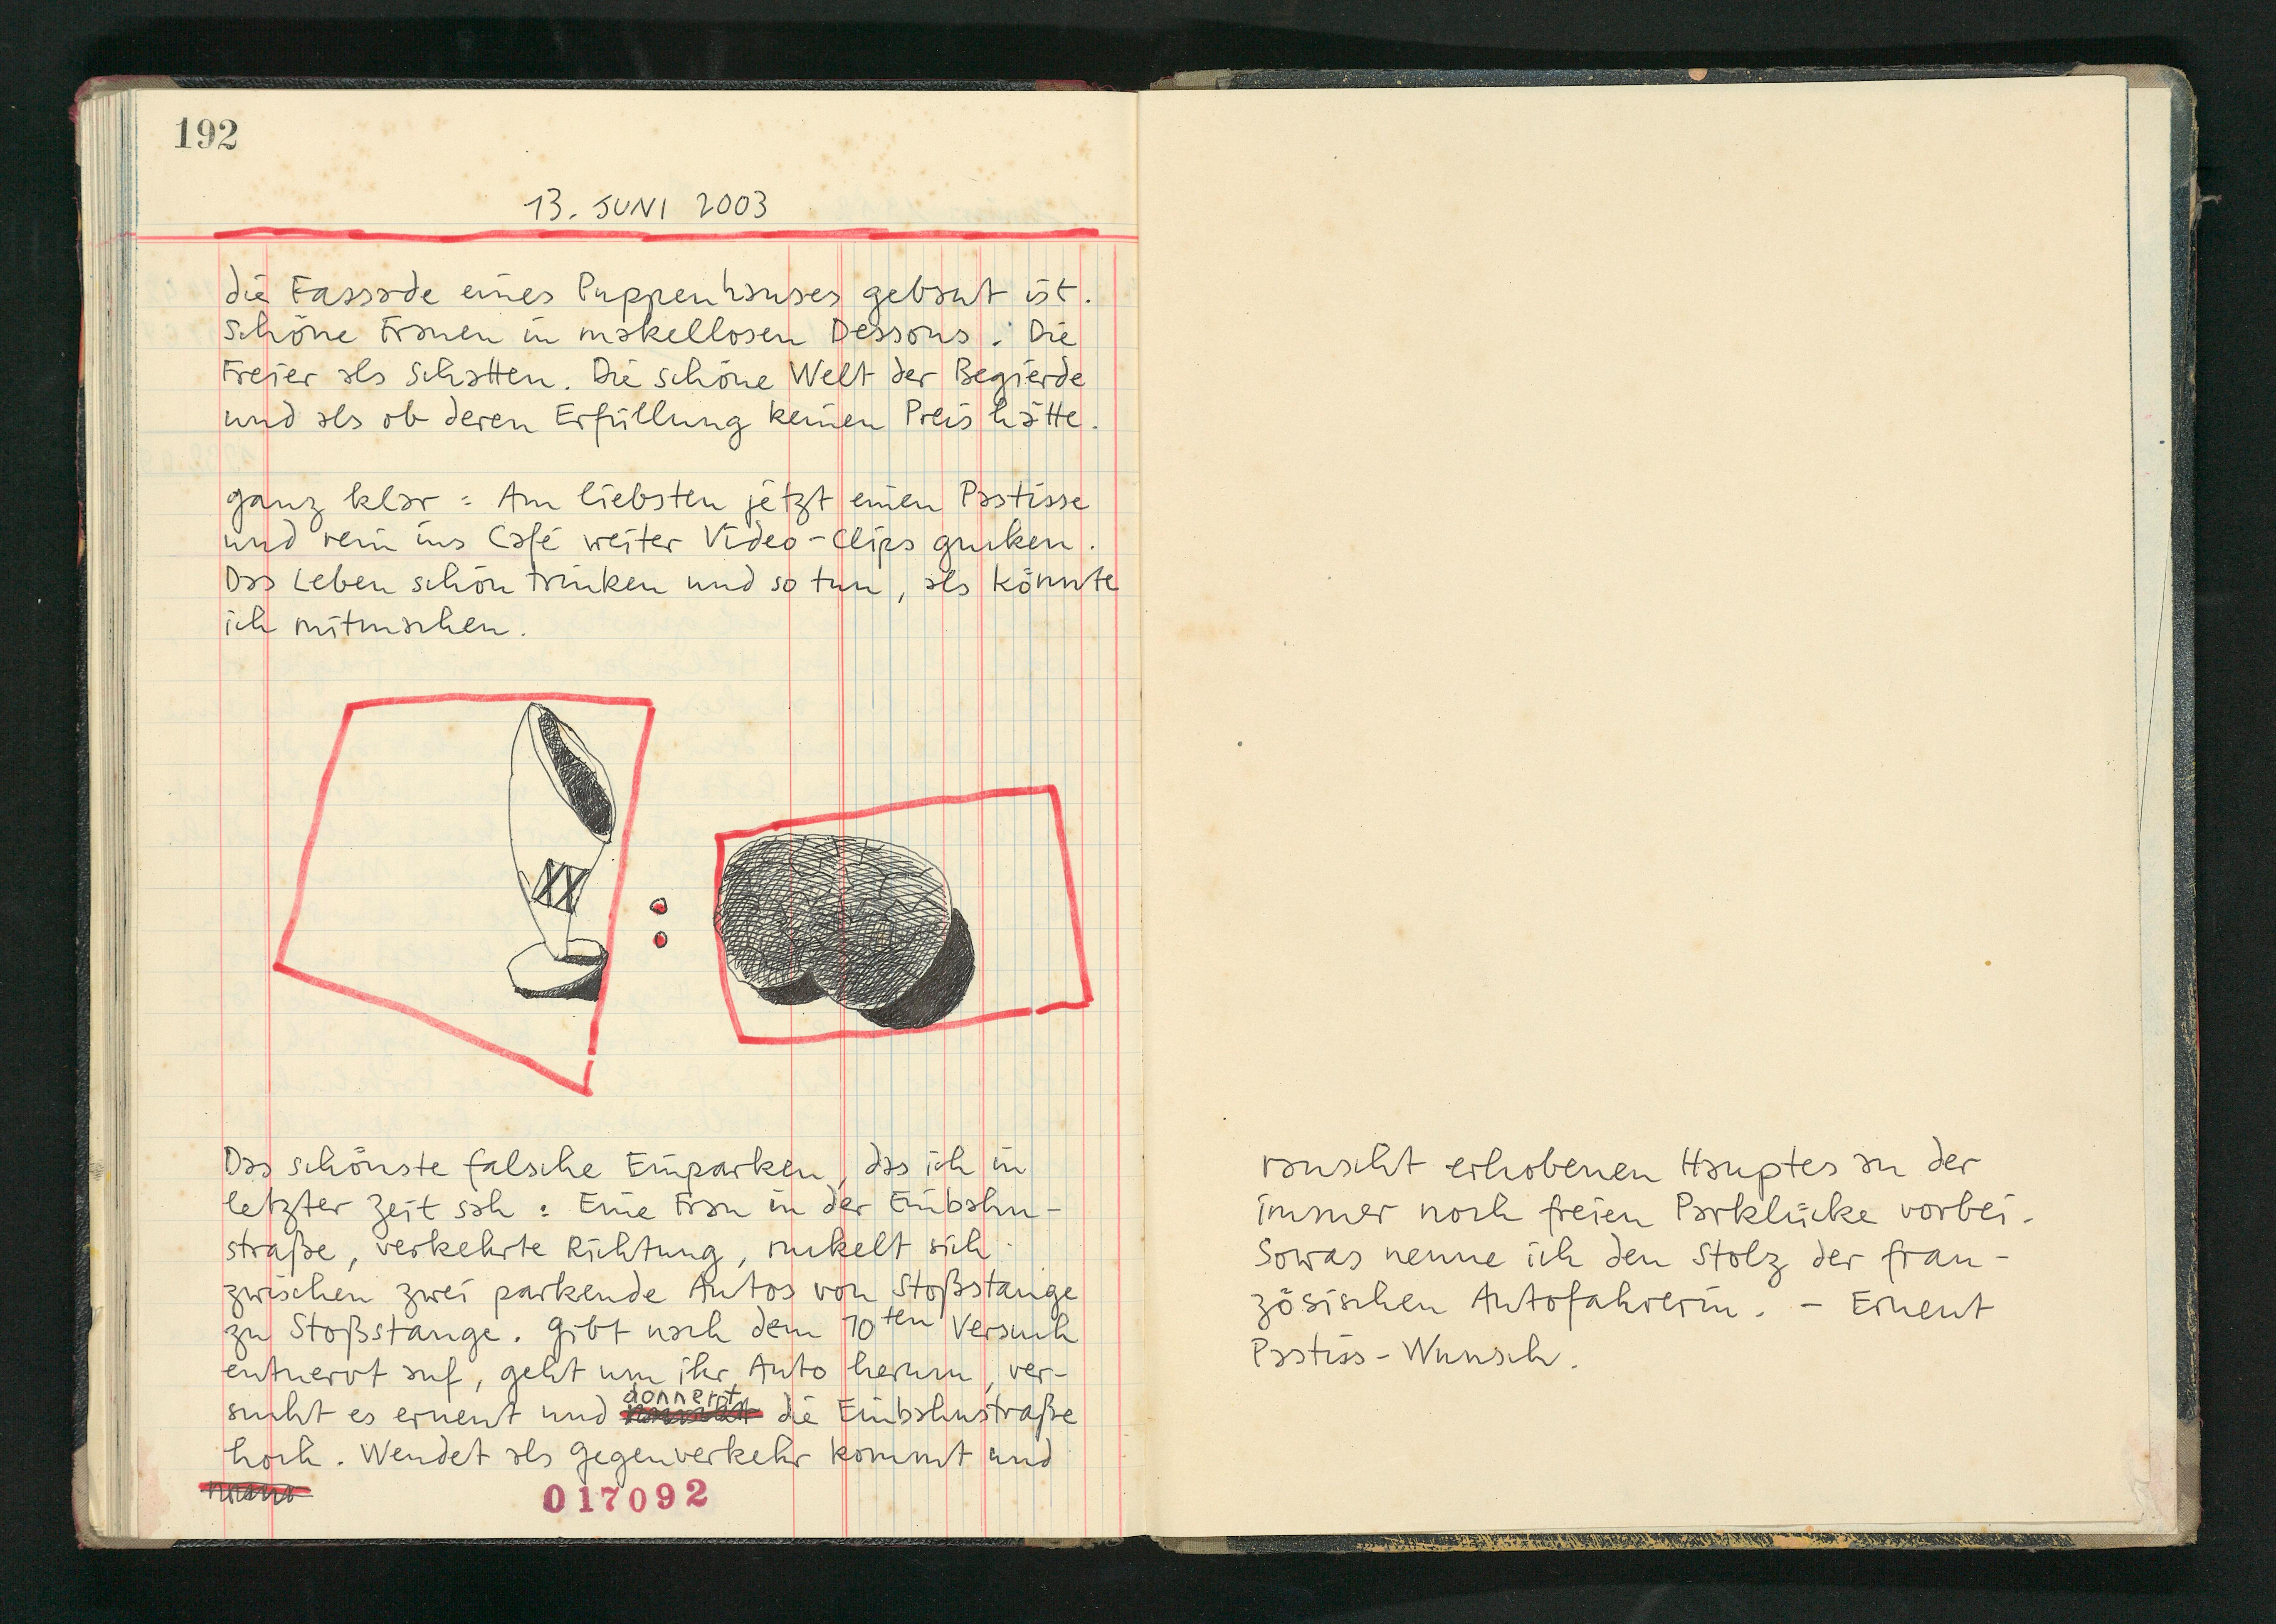 192
13. JUNI 2003
die Fassade eines Puppenhauses gebaut ist.
Schöne Frauen in makellosen Dessous. Die
Freier als Schatten. Die schöne Welt der Begierde
und als ob deren Erfüllung keinen Preis hätte.
ganz klar: Am liebsten jetzt einen Pastisse
und rein ins Café weiter Video-Clips gucken.
Das Leben schön trinken und so tun, als könnte
ich mitmachen.
XX
Das schönste falsche Einparken, das ich in
letzter Zeit sah: Eine Frau in der Einbahn-
straße, verkehrte Richtung, ruckelt sich
zwischen zwei parkende Autos von Stoßstange
zu Stoßstange. Gibt nach dem 10ten Versuch
entnervt auf, geht um ihr Auto herum, ver-
sucht es erneut und donnert die Einbahnstraße
hoch. Wendet als Gegenverkehr kommt und
017092
rauscht erhobenen Hauptes an der
immer noch freien Parklücke vorbei.
Sowas nenne ich den Stolz der fran-
zösischen Autofahrerin. - Erneut
Pastiss-Wunsch.